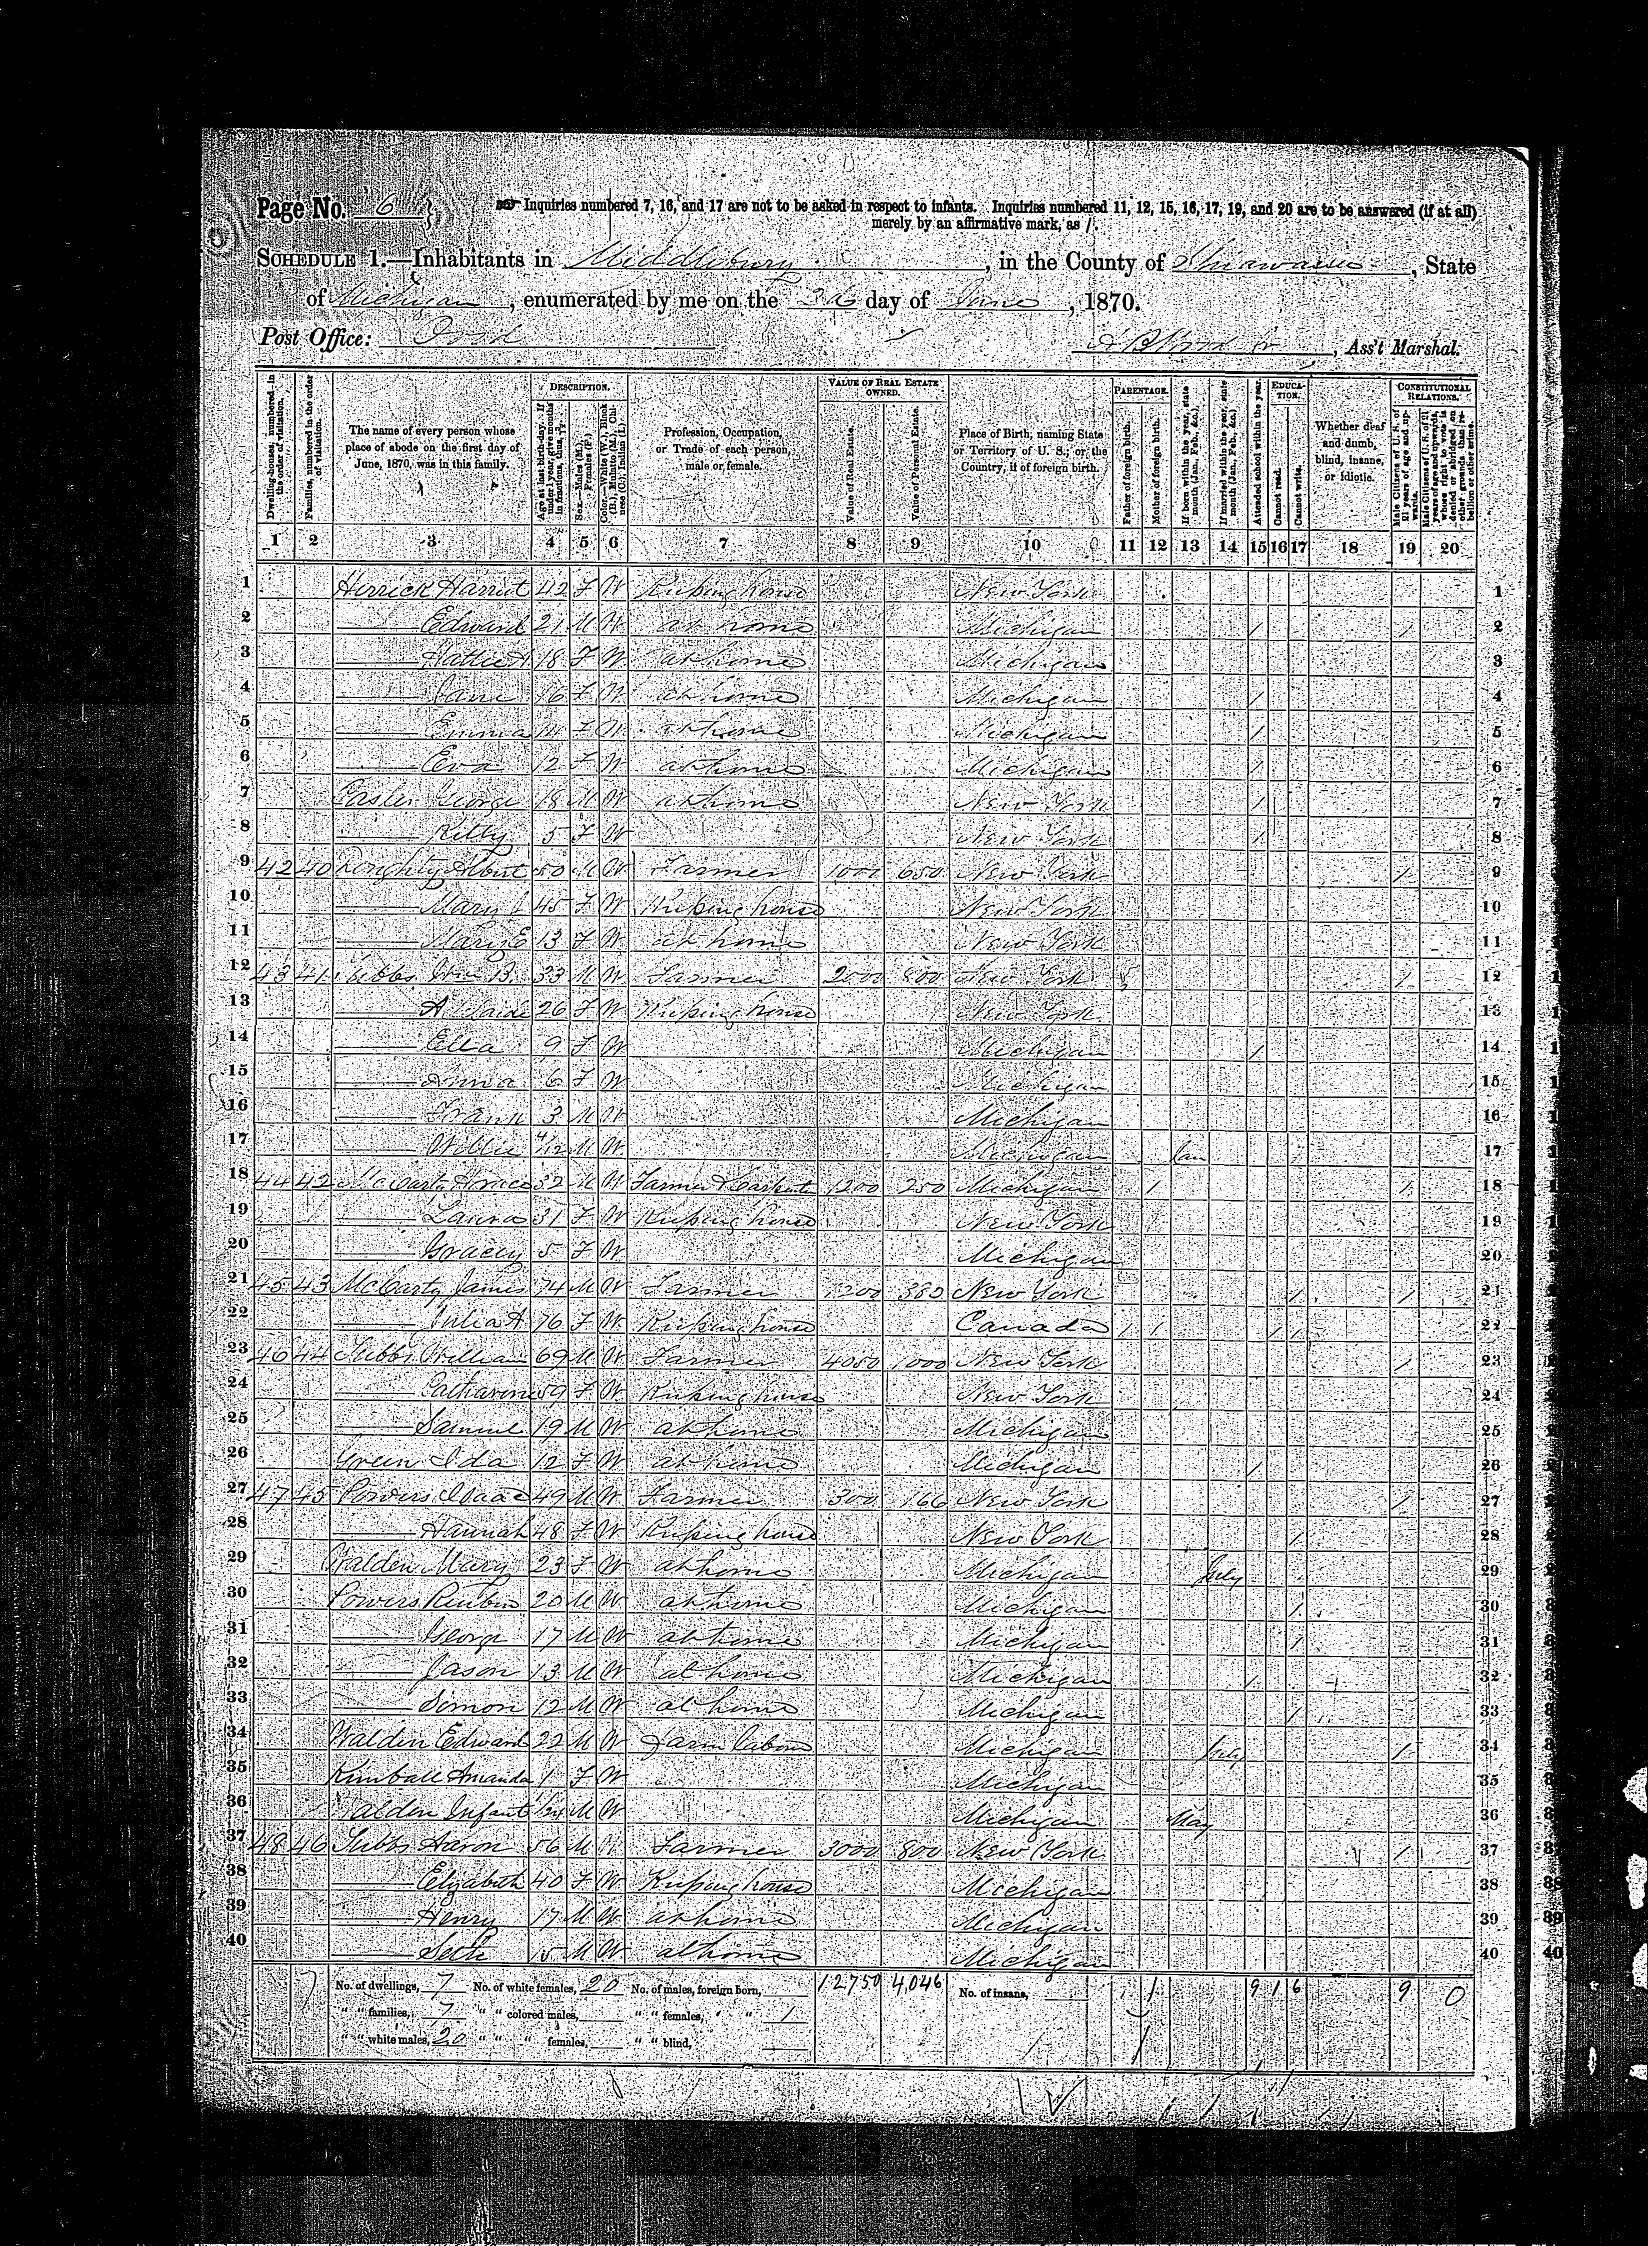 Page No. 6
Inquiries numbered 7, 16, and 17 are not to be asked in respect to infants. Inquiries numbered 11, 12, 15, 16, 17, 19, and 20 are to be answered (if at all)
merely by an affirmative mark, as /.
SCHEDULE 1.—Inhabitants in Middlebury, in the County of Shiawassee, State
of Michigan, enumerated by me on the 26 day of June, 1870.
Post Office:
Ass't Marshal.
Dwelling-houses, numbered in the order of visitation.
Families, numbered in the order of visitation.
The name of every person whose place of abode on the first day of June, 1870, was in this family.
DESCRIPTION.
Age at last birth-day. If under 1 year, give months in fractions, thus, 3/12.
Sex.—Males (M.), Females (F.)
Color.—White (W.), Black (B.), Mulatto (M.), Chinese (C.), Indian (I.)
Profession, Occupation, or Trade of each person, male or female.
VALUE OF REAL ESTATE OWNED.
Value of Real Estate.
Value of Personal Estate.
Place of Birth, naming State or Territory of U. S.; or the Country, if of foreign birth.
PARENTAGE.
Father of foreign birth.
Mother of foreign birth.
If born within the year, state month (Jan., Feb., &c.)
If married within the year, state month (Jan., Feb., &c.)
Attended school within the year.
EDUCATION.
Cannot read.
Cannot write.
Whether deaf and dumb, blind, insane, or idiotic.
CONSTITUTIONAL RELATIONS.
Male Citizens of U. S. of 21 years of age and upwards.
Male Citizens of U. S. of 21 years of age and upwards, whose right to vote is denied or abridged on other grounds than rebellion or other crime.
1 2 3 4 5 6 7 8 9 10 11 12 13 14 15 16 17 18 19 20
1 Herrick Harriet 42 F W Keeping house New York 1
2 —— Edward 21 M W at home Michigan 1 1 2
3 —— Hattie A 18 F W at home Michigan 3
4 —— Jane 16 F W at home Michigan 1 4
5 —— Emma 14 F W at home Michigan 1 5
6 —— Eva 12 F W at home Michigan 1 6
7 George 18 M W at home New York 1 7
8 —— Kitty 5 F W New York 1 8
9 42 40 50 M W Farmer 1000 650 New York 1 9
10 —— Mary 45 F W Keeping house New York 10
11 —— Mary E 13 F W at home New York 11
12 43 41 Wm B. 33 M W Farmer 2000 800 New York 1 12
13 —— 26 F W Keeping house New York 13
14 —— Ella 9 F W Michigan 1 14
15 —— 6 F W Michigan 15
16 —— Frank 3 M W Michigan 16
17 —— Willie 4/12 M W Michigan Jan 17
18 44 42 McCarty Horace 32 M W Farmer & Carpent 1200 250 Michigan 1 1 18
19 —— Laura 31 F W Keeping house New York 19
20 —— Gracey 5 F W Michigan 20
21 45 43 McCarty James 74 M W Farmer 1200 380 New York 1 1 21
22 —— Julia A 76 F W Keeping house Canada 1 1 1 1 22
23 46 44 William 69 M W Farmer 4050 1000 New York 1 23
24 —— Catharine 59 F W Keeping house New York 24
25 —— Samuel 19 M W at home Michigan 25
26 Green Ida 12 F W at home Michigan 1 26
27 47 45 Powers Isaac 49 M W Farmer 300 166 New York 1 27
28 —— Hannah 48 F W Keeping house New York 1 28
29 Walden Mary 23 F W at home Michigan July 29
30 Powers Reuben 20 M W at home Michigan 1 30
31 —— George 17 M W at home Michigan 1 31
32 —— Jason 13 M W at home Michigan 1 32
33 —— Simon 12 M W at home Michigan 1 33
34 Walden Edward 22 M W Farm labor Michigan July 1 34
35 Kimball Amanda 1 F W Michigan 35
36 Walden Infant M W Michigan May 36
37 48 46 Aaron 56 M W Farmer 3000 800 New York 1 37
38 —— Elizabeth 40 F W Keeping house Michigan 38
39 —— Henry 17 M W at home Michigan 39
40 —— Seth 15 M W at home Michigan 40
No. of dwellings, 7 No. of white females, 20 No. of males, foreign born, 12750 4,046 No. of insane, 1 1 9 1 6 9 0
" " families, 7 " " colored males, " " females, " " 1
" " white males, 20 " " " females, " " blind,